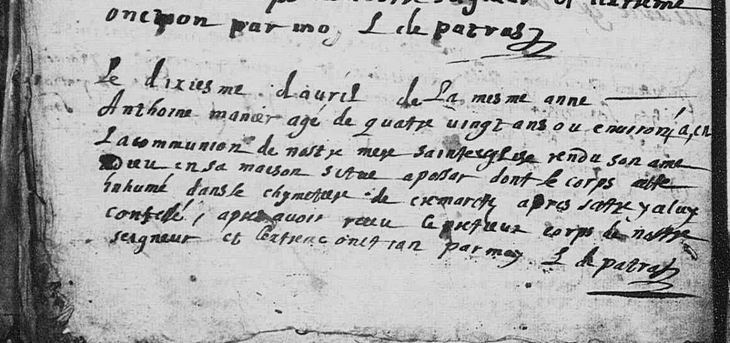 onction par moy L de patras
Le dixiesme d'auril de La mesme anne
Anthoine manier agé de quatre uingt ans ou environ, a, en
La communion de nostre mere saincte eglise rendu son ame
a Dieu en sa maison situe a dont le corps a este
inhumé dans le chymetiere de cremarest apres s'estre a luy
confessé, apres avoir receu le pretieux corps de nostre
seigneur et l'extreme onction par moy L de patras